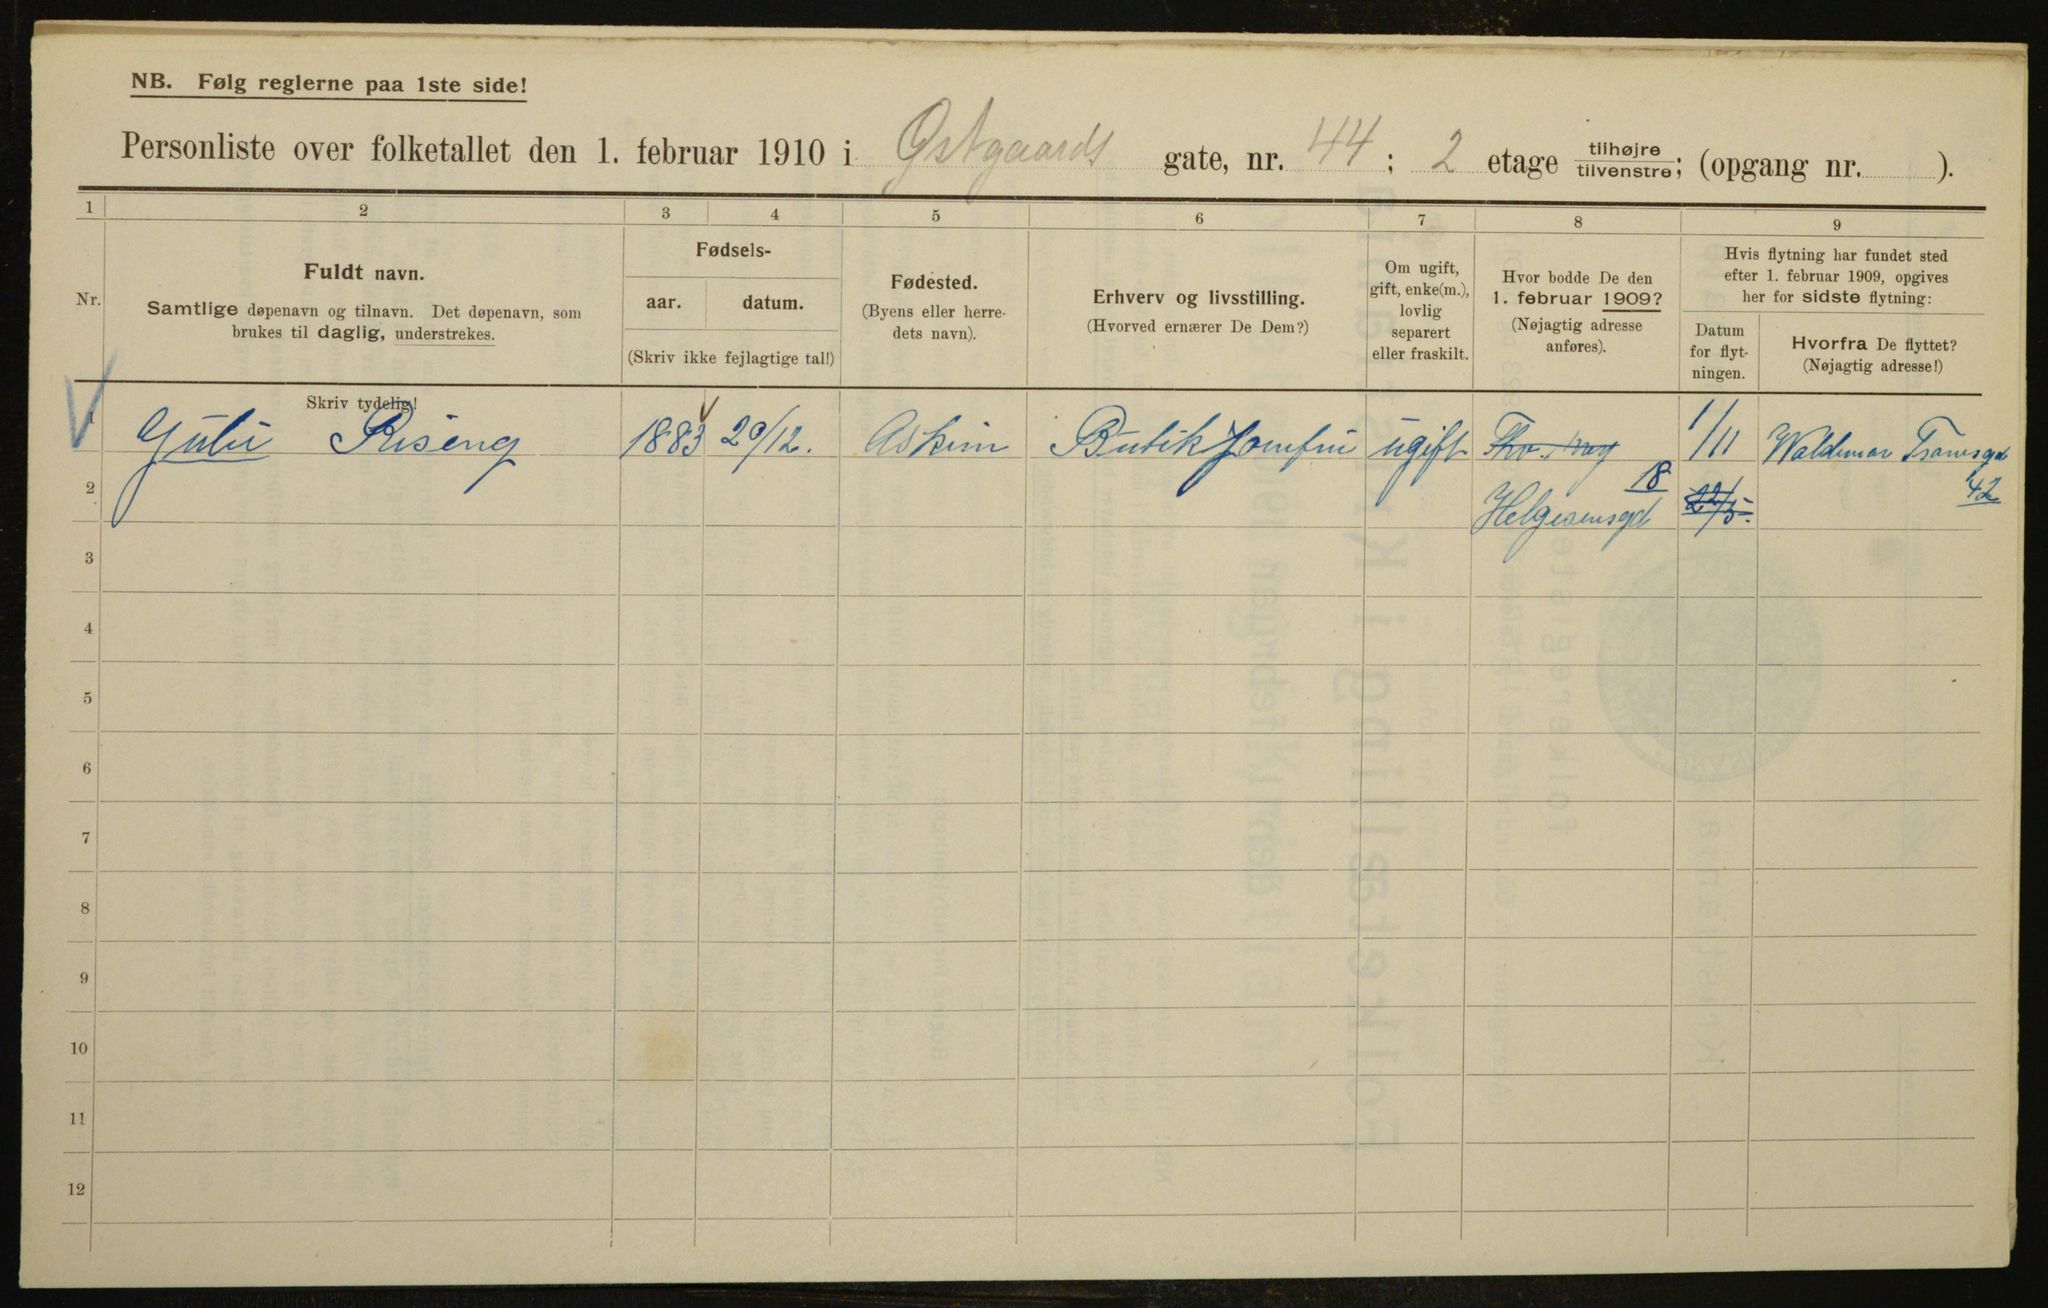 NB. Følg reglerne paa 1ste side!
Personliste over folketallet den 1. februar 1910 i Østgaards gate, nr. 44 ; 2 etage tilhøjre/tilvenstre; (opgang nr. ).
1 2 3 4 5 6 7 8 9
Nr.
Fuldt navn.
Samtlige døpenavn og tilnavn. Det døpenavn, som
brukes til daglig, understrekes.
Skriv tydelig!
Fødsels-
aar. datum.
(Skriv ikke fejlagtige tal!)
Fødested.
(Byens eller herre-
dets navn).
Erhverv og livsstilling.
(Hvorved ernærer De Dem?)
Om ugift,
gift, enke(m.),
lovlig
separert
eller fraskilt.
Hvor bodde De den
1. februar 1909?
(Nøjagtig adresse
anføres).
Hvis flytning har fundet sted
efter 1. februar 1909, opgives
her for sidste flytning:
Datum
for flyt-
ningen.
Hvorfra De flyttet?
(Nøjagtig adresse!)
1 Riseng 1883 29/12. Askim Butikjomfru ugift 1/11 Waldemar Tranesgd
2 18 Helgesensgd 22/5. 42
3
4
5
6
7
8
9
10
11
12